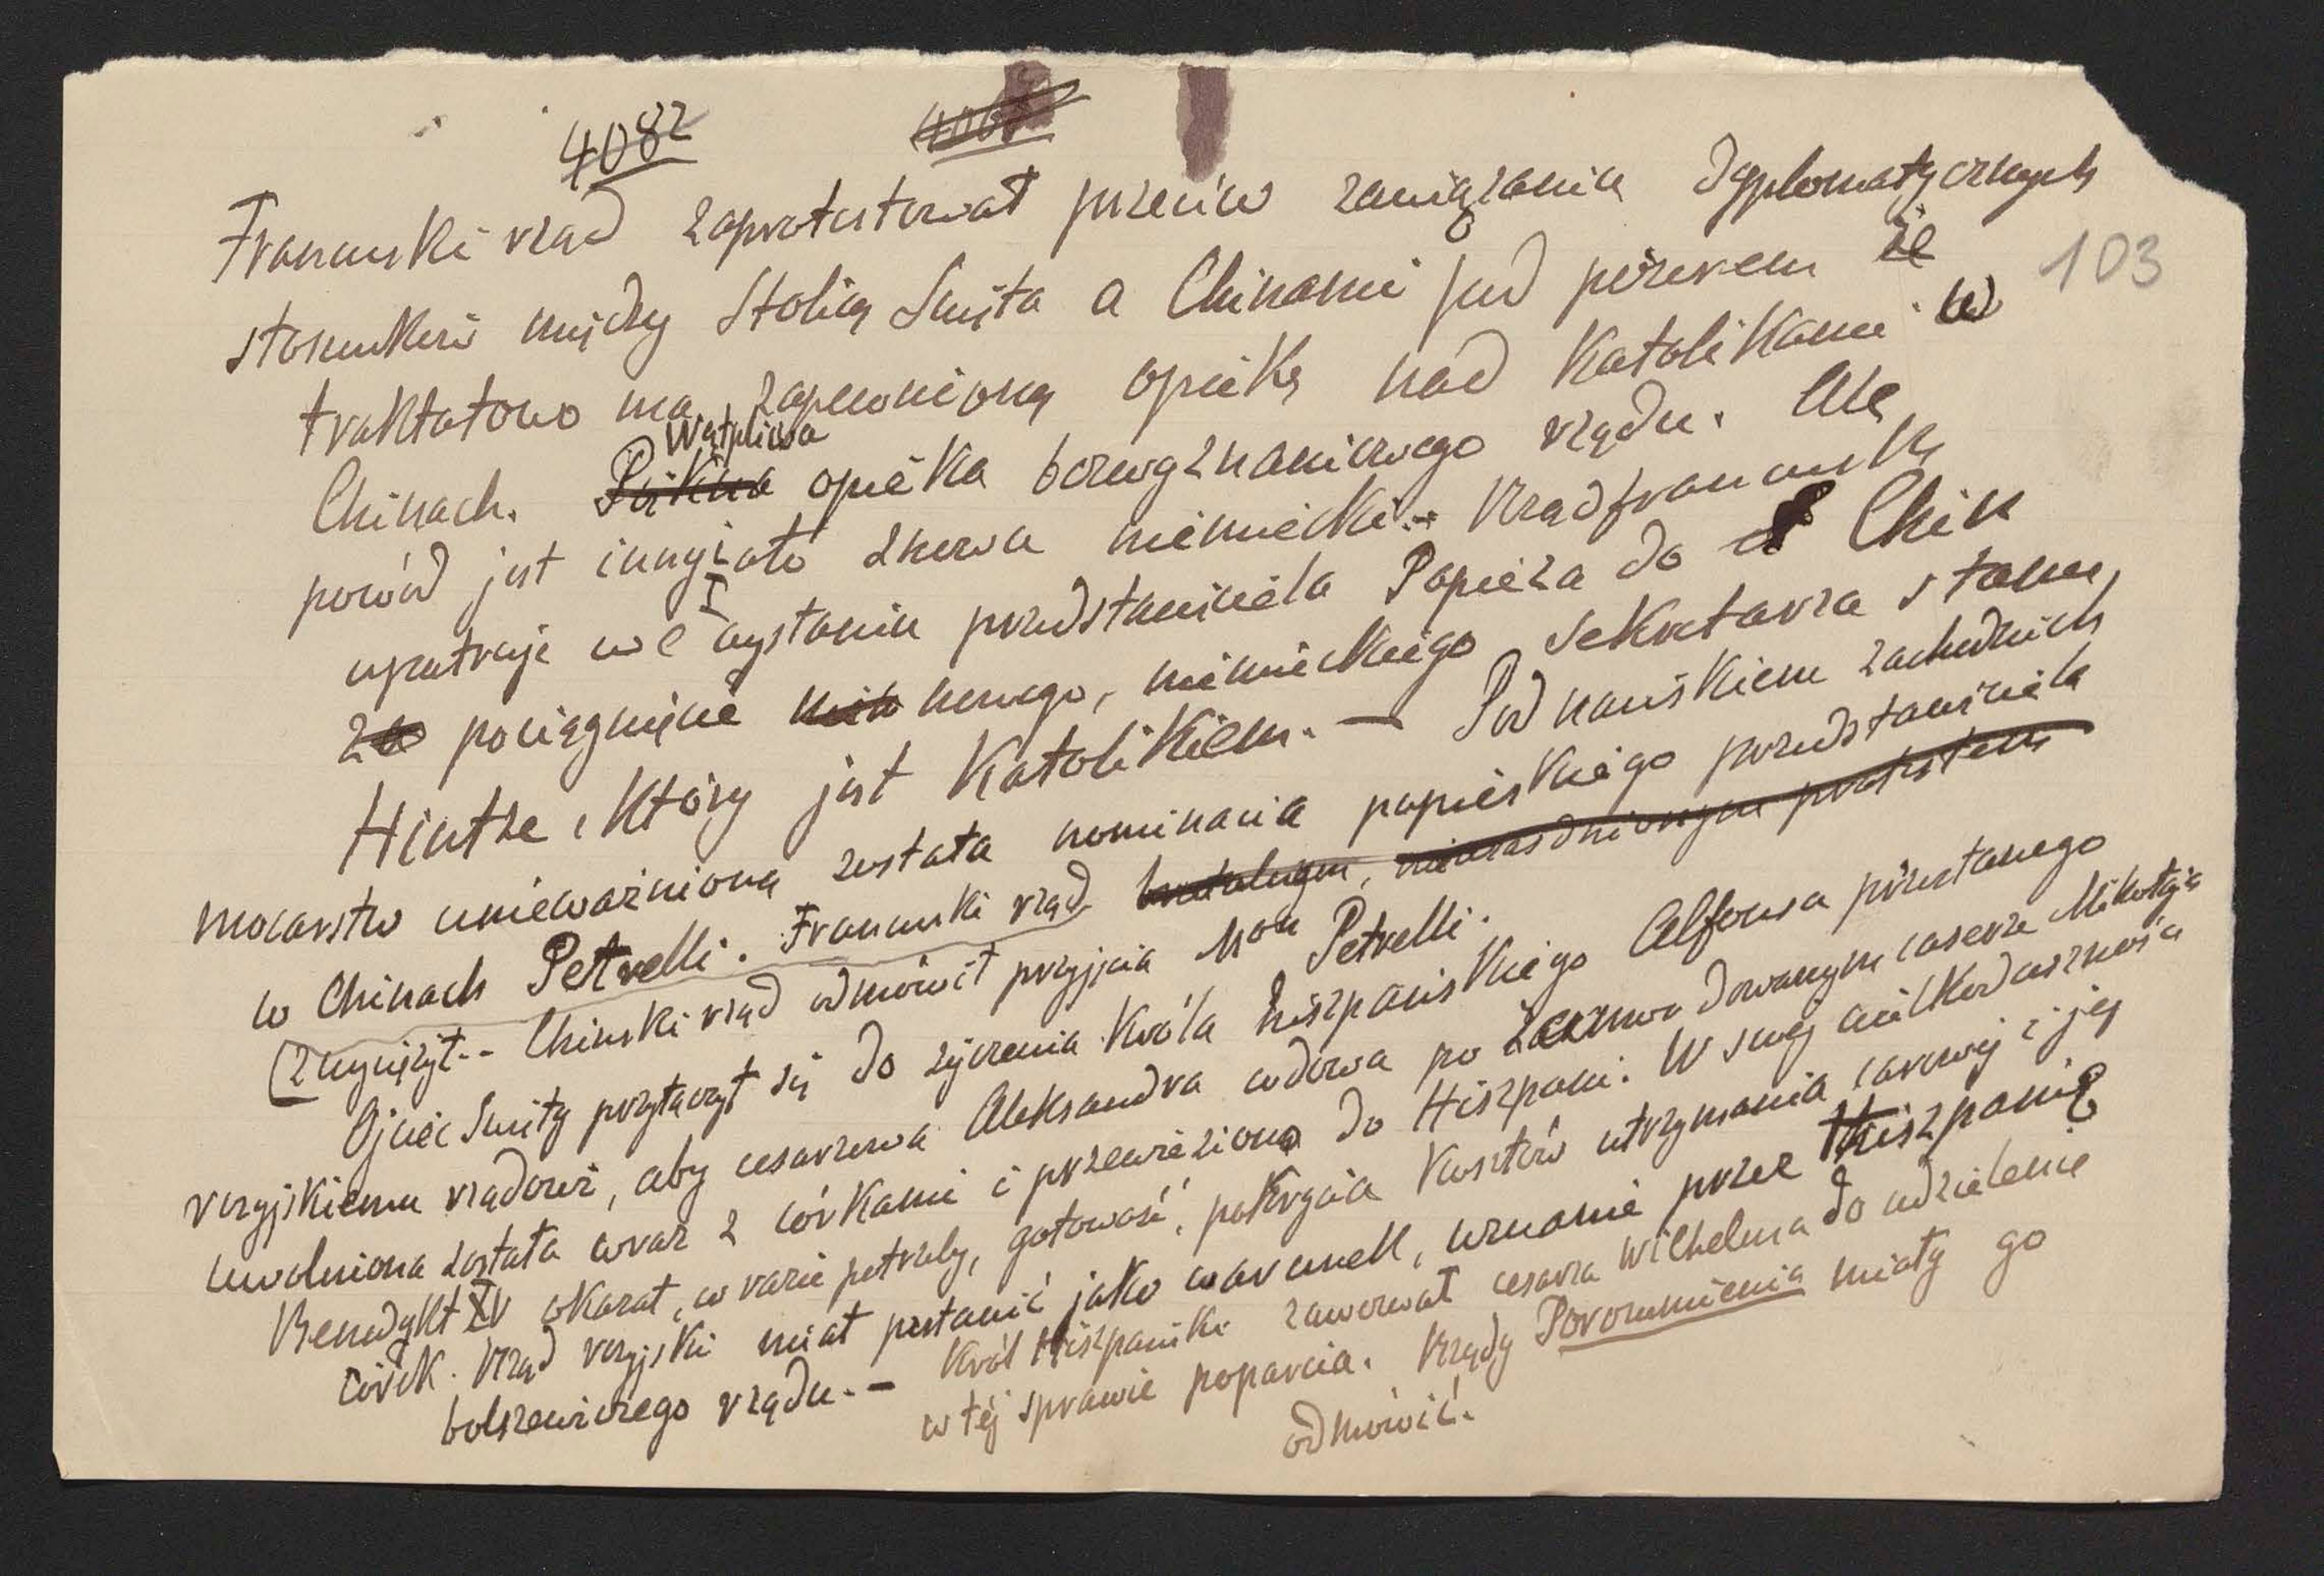 4082 406
Francuski rząd zaprotestował przeciw zawiązania dyplomatycznych
103
stosunków między Stolicą Świętą a Chinami pod pozorem że
traktatowo ma zapewnioną opiekę nad Katolikami w
Wątpliwa
Chinach. Piękna opieka bezwyznaniowego rządu. Ale
powód jest inny, oto znowu niemiecki. Rząd francuski
upatruje we wysłaniu przedstawiciela Papieża do Chin
za pociągnięcie nowego, niemieckiego sekretarza stanu,
Hintze, który jest Katolikiem. — Pod naciskiem zachodnich
mocarstw unieważniona została nominacja papieskiego przedstawiciela
w Chinach Petrelli. Francuski rząd brutalnym, nieuzasadnionym protestem
zwyciężył. - Chiński rząd odmówił przyjęcia Mon Petrelli.
Ojciec Święty przyłączył się do życzenia Króla hiszpańskiego Alfonsa przesłanego
rosyjskiemu rządowi, aby cesarzowa Aleksandra wdowa po zamordowanym cesarzu Mikołaju
uwolniona została wraz z córkami i przewieziona do Hiszpani. W swej wielkoduszności
Benedykt XV okazał, w razie potrzeby, gotowość, pokrycia kosztów utrzymania carowej i jej
córek. Rząd rosyjski miał postawić jako warunek, uznanie przez Hiszpanię
bolszewickiego rządu. — Król Hiszpański zawezwał cesarza Wilhelma do udzielenie
w tej sprawie poparcia. Rządy Porozumienia miały go
odmówić.